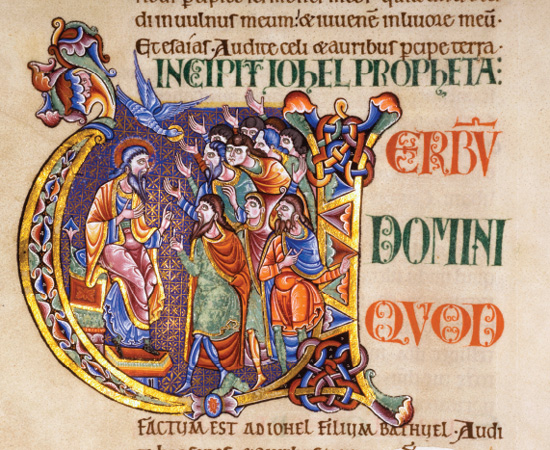 di in uulnus meum: & iuuenē in liuore meū·
Et esaias. Audite celi & auribus pcipe terra·
INCIPIT IOhEL PROPhETA:
VERBV̄
DOMINI
QVOD
FACTUM EST AD IOhEL FILIUM BAThUEL. Audi